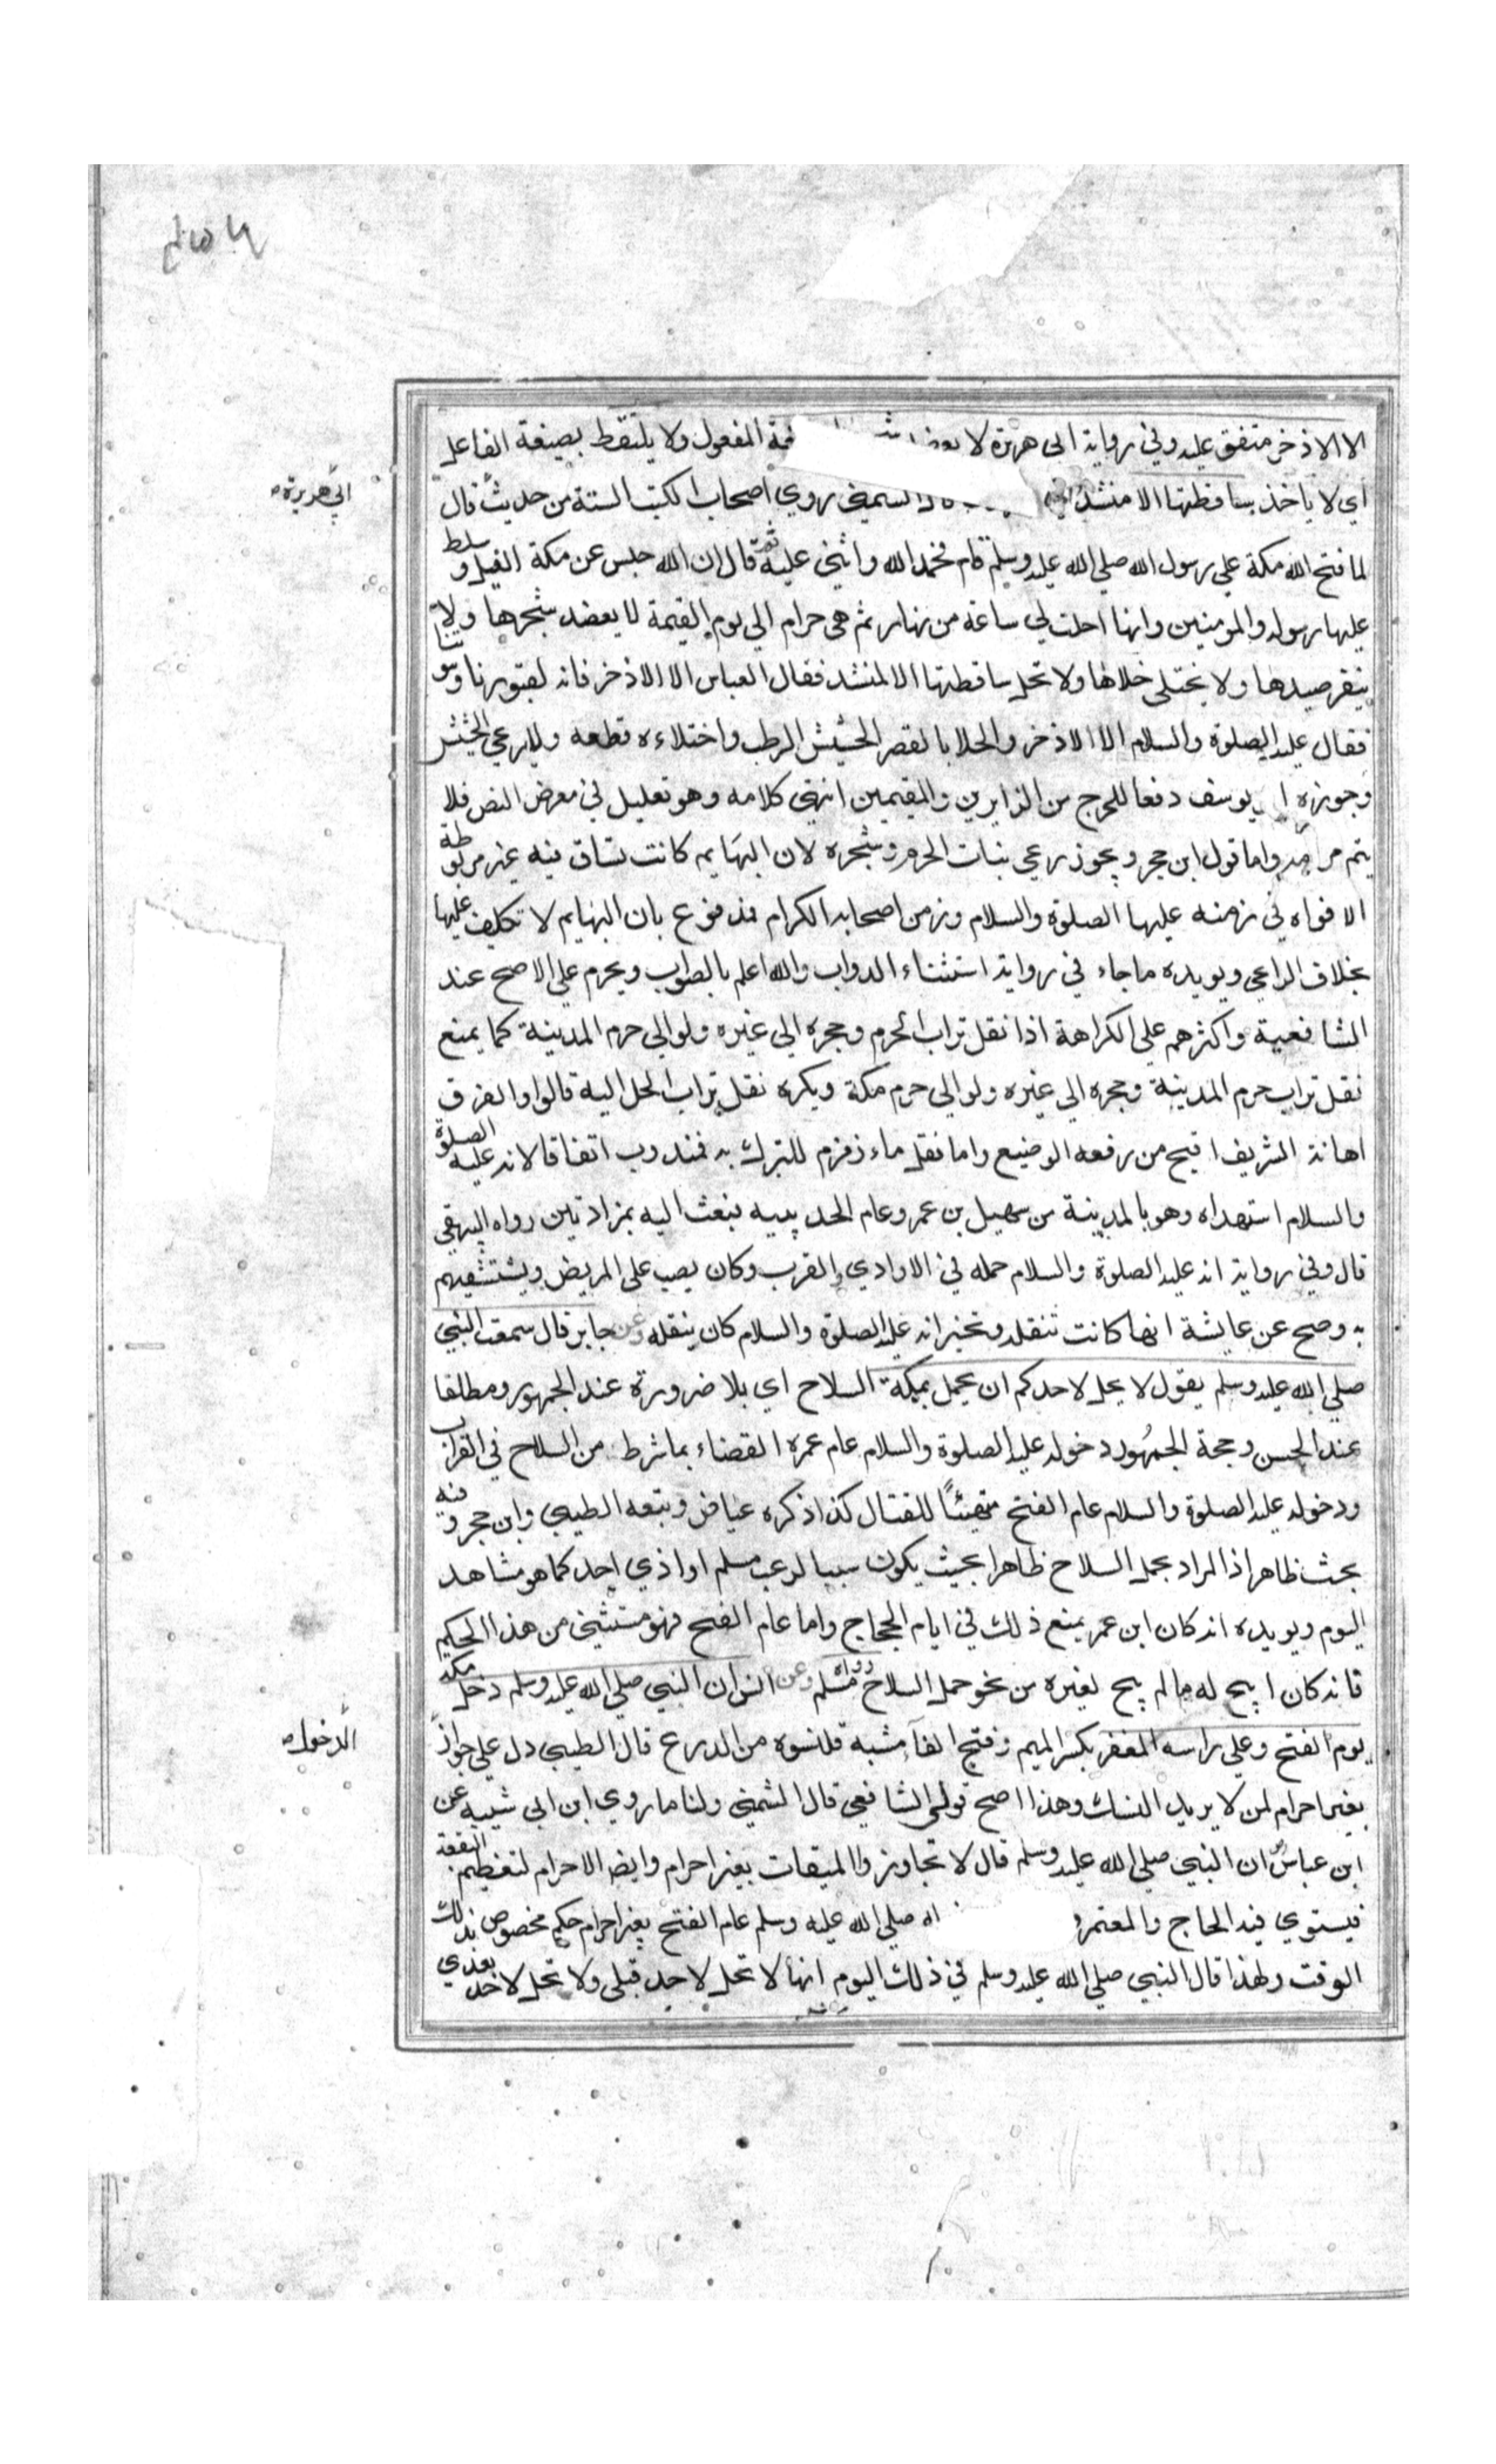 الا الاذخر متفق عليه وفي رواية ابي هريرة لا يعضد المفعول ولا يلتقط بصيغة الفاعل
اي لا ياخذ ساقطتها الا منشد الشمني روي اصحاب الكتب الستة من حديث قال
ابي هريرة
لما فتح الله مكة علي رسول الله صلي الله عليه وسلم قام فحمد الله واثني عليه ثم قال ان الله حبس عن مكة الفيل وسلط
عليها رسوله والمومنين وانها احلت لي ساعة من نهار ثم هي حرام الي يوم القيمة لا يعضد شجرها ولا
ينفر صيدها ولا يختلي خلاها ولا تحل ساقطتها الا لمنشد فقال العباس الا الاذخر فانه لقبورنا وبيوتنا
فقال عليه الصلوة والسلام الا الاذخر والخلا بالقصر الحشيش الرطب واختلاءه قطعه ولا يرعي الحشيش
وجوزه ابو يوسف دفعا للحرج من الزايرين والمقيمين انتهي كلامه وهو تعليل في معرض النص فلا
يتم مرامه واما قول ابن حجر ويجوز رعي نبات الحرم وشجره لان البهايم كانت تساق فيه غير مربوطة
الافواه في زمنه عليها الصلوة والسلام وزمن اصحابه الكرام فمدفوع بان البهايم لا تكليف عليها
بخلاف الراعي ويويده ما جاء في رواية استثناء الدواب والله اعلم بالصواب ويحرم علي الاصح عند
الشافعية واكثرهم علي الكراهة اذا نقل تراب الحرم وحجره الي غيره ولو الي حرم المدينة كما يمنع
نقل تراب حرم المدينة وحجره الي غيره ولو الي حرم مكة ويكره نقل تراب الحل اليه قالوا والفرق
اهانة الشريف اقبح من رفعه الوضيع واما نقل ماء زمزم للتبرك به فمندوب اتفاقا لانه عليه الصلوة
والسلام استهداه وهو بالمدينة من سهيل بن عمرو عام الحديبيه فبعث اليه بمزادتين رواه البيهقي
قال وفي رواية انه عليه الصلوة والسلام حمله في الاوادي والقرب وكان يصب علي المريض ويستشفيهم
به وصح عن عايشة انها كانت تنقله وتخبر انه عليه الصلوة والسلام كان ينقله وعن جابر قال سمعت النبي
صلي الله عليه وسلم يقول لا يحل لاحدكم ان يحمل بمكة السلاح اي بلا ضرورة عند الجمهور ومطلقا
عند الحسن وحجة الجمهور دخوله عليه الصلوة والسلام عام عمرة القضاء بما شرط من السلاح في القراب
ودخوله عليه الصلوة والسلام عام الفتح متهيئًا للقتال كذا ذكره عياض وتبعه الطيبي وابن حجر وفيه
بحث ظاهر اذ المراد بحمل السلاح ظاهرا بحيث يكون سببا لرعب مسلم او اذي احد كما هو مشاهد
اليوم ويويده انه كان ابن عمر يمنع ذلك في ايام الحجاج واما عام الفتح فهو مستثني من هذا الحكم
فانه كان ابيح له ما لم يبح لغيره من نحو حمل السلاح رواه مسلم وعن انس ان النبي صلي الله عليه وسلم دخل مكة
يوم الفتح وعلي راسه المغفر بكسر الميم وفتح الفاء شبه قلنسوه من الدرع قال الطيبي دل علي جواز
الدخول
بغير احرام لمن لا يريد النسك وهذا اصح قولي الشافعي قال الشمني ولنا ما روي ابن ابي شيبه عن
ابن عباس ان النبي صلي الله عليه وسلم قال لا تجاوزوا الميقات بغير احرام وايضا الاحرام لتعظيم البقعة
فيستوي فيه الحاج والمعتمر و صلي الله عليه وسلم عام الفتح بغير احرام حكم مخصوص بذلك
الوقت ولهذا قال النبي صلي الله عليه وسلم في ذلك اليوم انها لا تحل لاحد قبلي ولا تحل لاحد بعدي